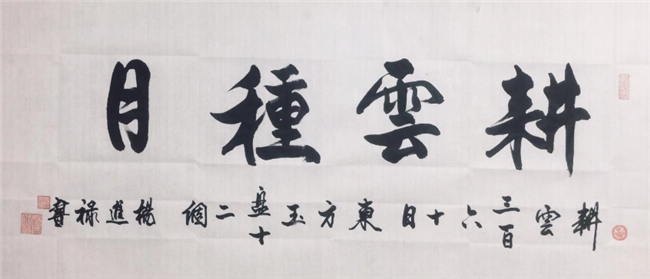 耕雲種月
耕雲三百六十日東方玉盤十二個楊進禄書